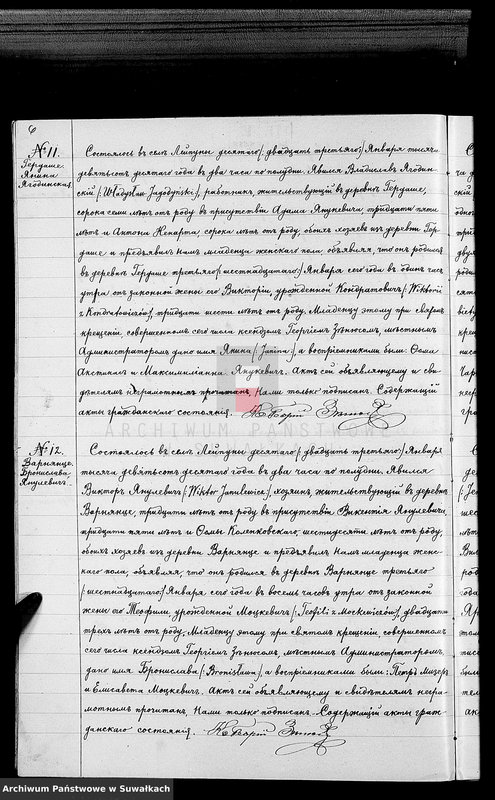 6
№ 11.
Гердаше.
Янина
Ягодинская
Состоялось въ селѣ Лейпуны десятаго /: двадцать третьяго:/ Января тысяча
девятьсотъ десятаго года въ два часа по полудни. Явился Владиславъ Ягодин-
скій /: Władysław Jagodyński:/, работникъ, жительствующій въ деревнѣ Гердаше,
сорока семи лѣтъ отъ роду въ присутствіи Адама Янукевича тридцати пяти
лѣтъ и Антона сорока лѣтъ отъ роду, обоихъ хозяевъ изъ деревни Гер-
даше и предъявилъ Намъ младенца женскаго пола, объявляя, что онъ родился
въ деревнѣ Гердаше третьяго /: шестнадцатаго:/ Января сего года въ одинъ часъ
утра отъ законной жены его Викторіи урожденной Кондратовичъ /: Wiktorii
z Kondratowiczów:/, тридцати шести лѣтъ отъ роду. Младенцу этому при святомъ
крещеніи, совершенномъ сего числа ксендзомъ Георгіемъ мѣстнымъ
Администраторомъ дано имя Янина /: Janina:/, а воспріемниками были: Ѳома
и Максимилліанна Янукевичъ. Актъ сей объявляющему и сви-
дѣтелямъ неграмотнымъ прочитанъ, Нами только подписанъ. Содержащій
акты гражданскаго состоянія.
ARCHIWUM PAŃSTWOWE
№ 12.
Варнянце.
Бронислава
Янулевичъ.
Состоялось въ селѣ Лейпуны десятаго /: двадцать третьяго:/ Января
тысяча девятьсотъ десятаго года въ два часа по полудни. Явился
Викторъ Янулевичъ /: Wiktor Janulewicz:/, хозяинъ жительствующій въ деревнѣ
Варнянце, тридцать лѣтъ отъ роду въ присутствіи Викентія Янулевича,
тридцати пяти лѣтъ и Ѳомы Коленковскаго, шестидесяти лѣтъ отъ роду,
обоихъ хозяевъ изъ деревни Варнянце и предъявилъ Намъ младенца женс-
каго пола, объявляя, что онъ родился въ деревнѣ Варнянце третьяго
/: шестнадцатаго:/ Января сего года въ восемь часовъ утра отъ законной
жены его Теофили урожденной Моцкевичъ /: Teofili z Mockiewiczów:/, двадцати
трехъ лѣтъ отъ роду. Младенцу этому при святомъ крещеніи совершенномъ
сего числа ксендзомъ Георгіемъ мѣстнымъ Администраторомъ,
дано имя Бронислава /: Bronisława:/, а воспріемниками были: Петръ
и Елисавета Моцкевичъ. Актъ сей объявляющему и свидѣтелямъ негра-
мотнымъ прочитанъ, Нами только подписанъ. Содержащій акты граж-
данскаго состоянія.
Archiwum Państwowe w Suwałkach